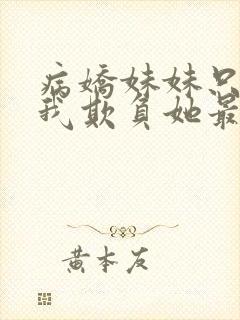 病嬌妹妹只
我欺負她最
黄本友